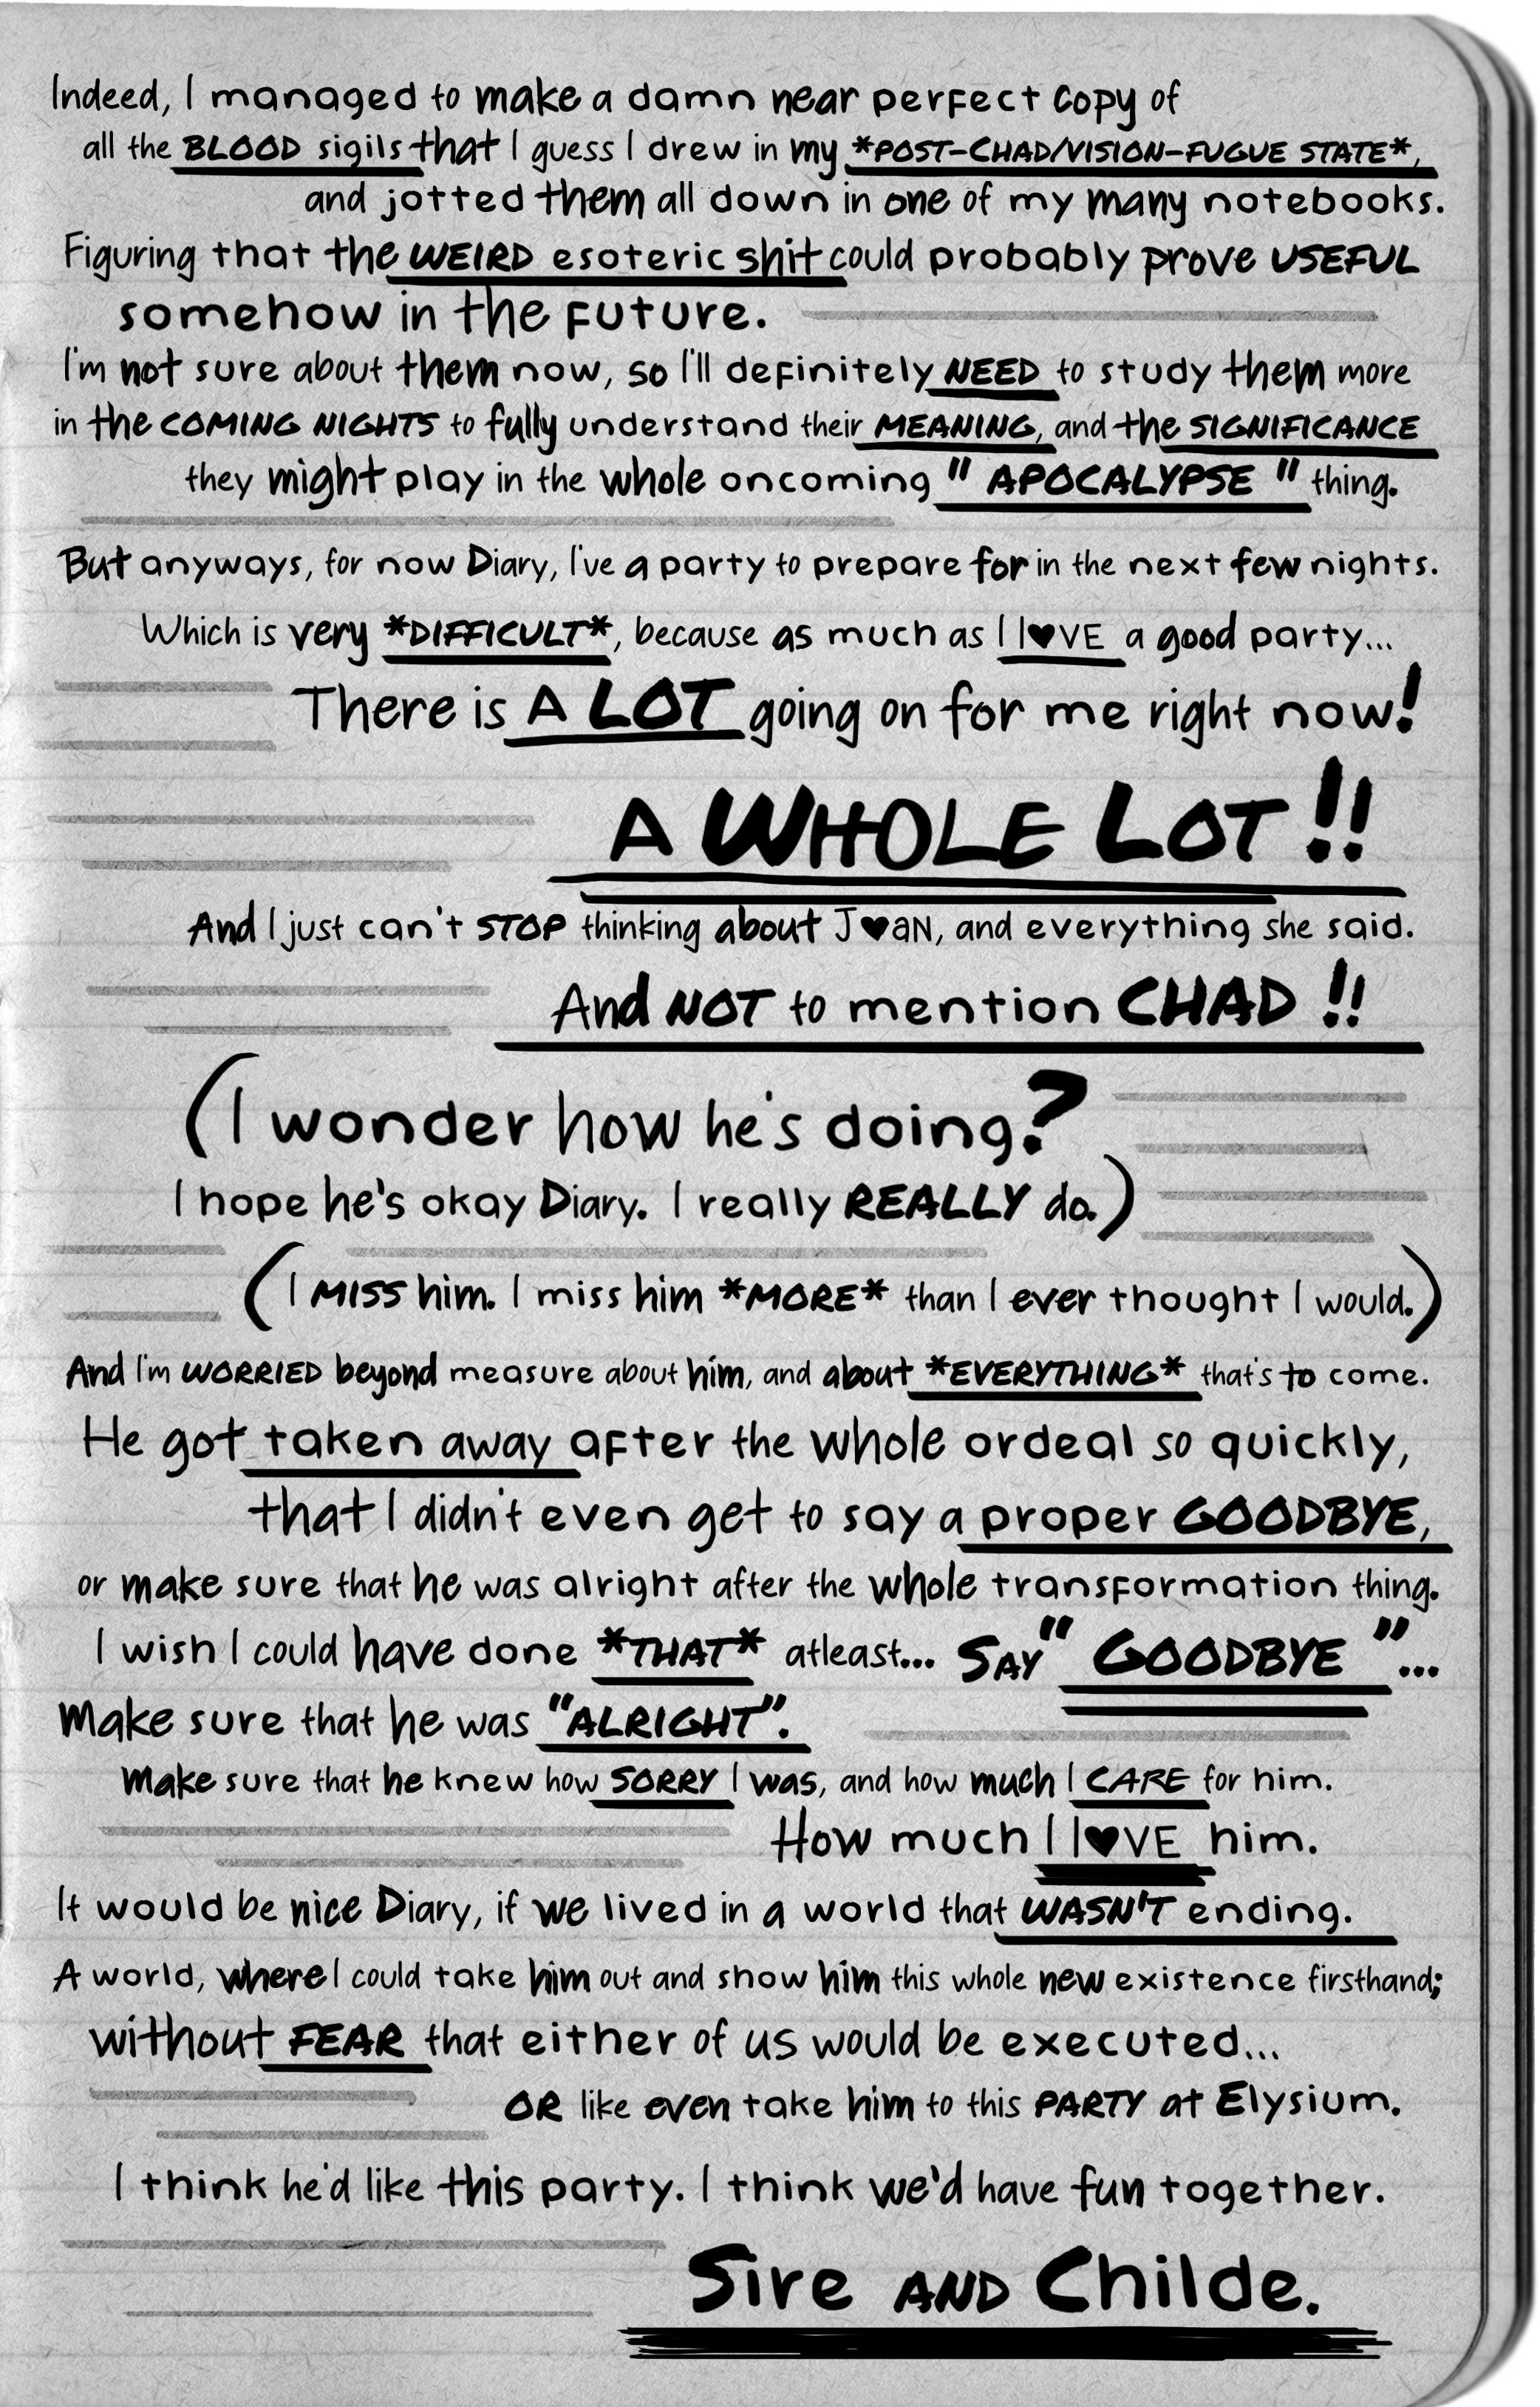 Indeed, I managed to make a damn near perfect copy of
all the BLOOD sigils that I guess I drew in my *POST-CHAD/VISION-FUGUE STATE*,
and jotted them all down in one of my many notebooks.
Figuring that the WEIRD esoteric shit could probably prove USEFUL
somehow in the future.
I'm not sure about them now, so I'll definitely NEED to study them more
in the COMING NIGHTS to fully understand their MEANING, and the SIGNIFICANCE
they might play in the whole oncoming "APOCALYPSE" thing.
But anyways, for now Diary, I've a party to prepare for in the next few nights.
Which is very *DIFFICULT*, because as much as I l♥VE a good party...
There is A LOT going on for me right now!
A WHOLE LOT!!
And I just can't STOP thinking about J♥aN, and everything she said.
And NOT to mention CHAD!!
(I wonder how he's doing?
I hope he's okay Diary. I really REALLY do.)
(I MISS him. I miss him *MORE* than I ever thought I would.)
And I'm WORRIED beyond measure about him, and about *EVERYTHING* that's to come.
He got taken away after the whole ordeal so quickly,
that I didn't even get to say a proper GOODBYE,
or make sure that he was alright after the whole transformation thing.
I wish I could have done *THAT* atleast... SAY "GOODBYE"...
Make sure that he was "ALRIGHT".
Make sure that he knew how SORRY I was, and how much I CARE for him.
How much I l♥VE him.
It would be nice Diary, if we lived in a world that WASN'T ending.
A world, where I could take him out and show him this whole new existence firsthand;
without FEAR that either of us would be executed...
OR like even take him to this PARTY at Elysium.
I think he'd like this party. I think we'd have fun together.
Sire AND Childe.